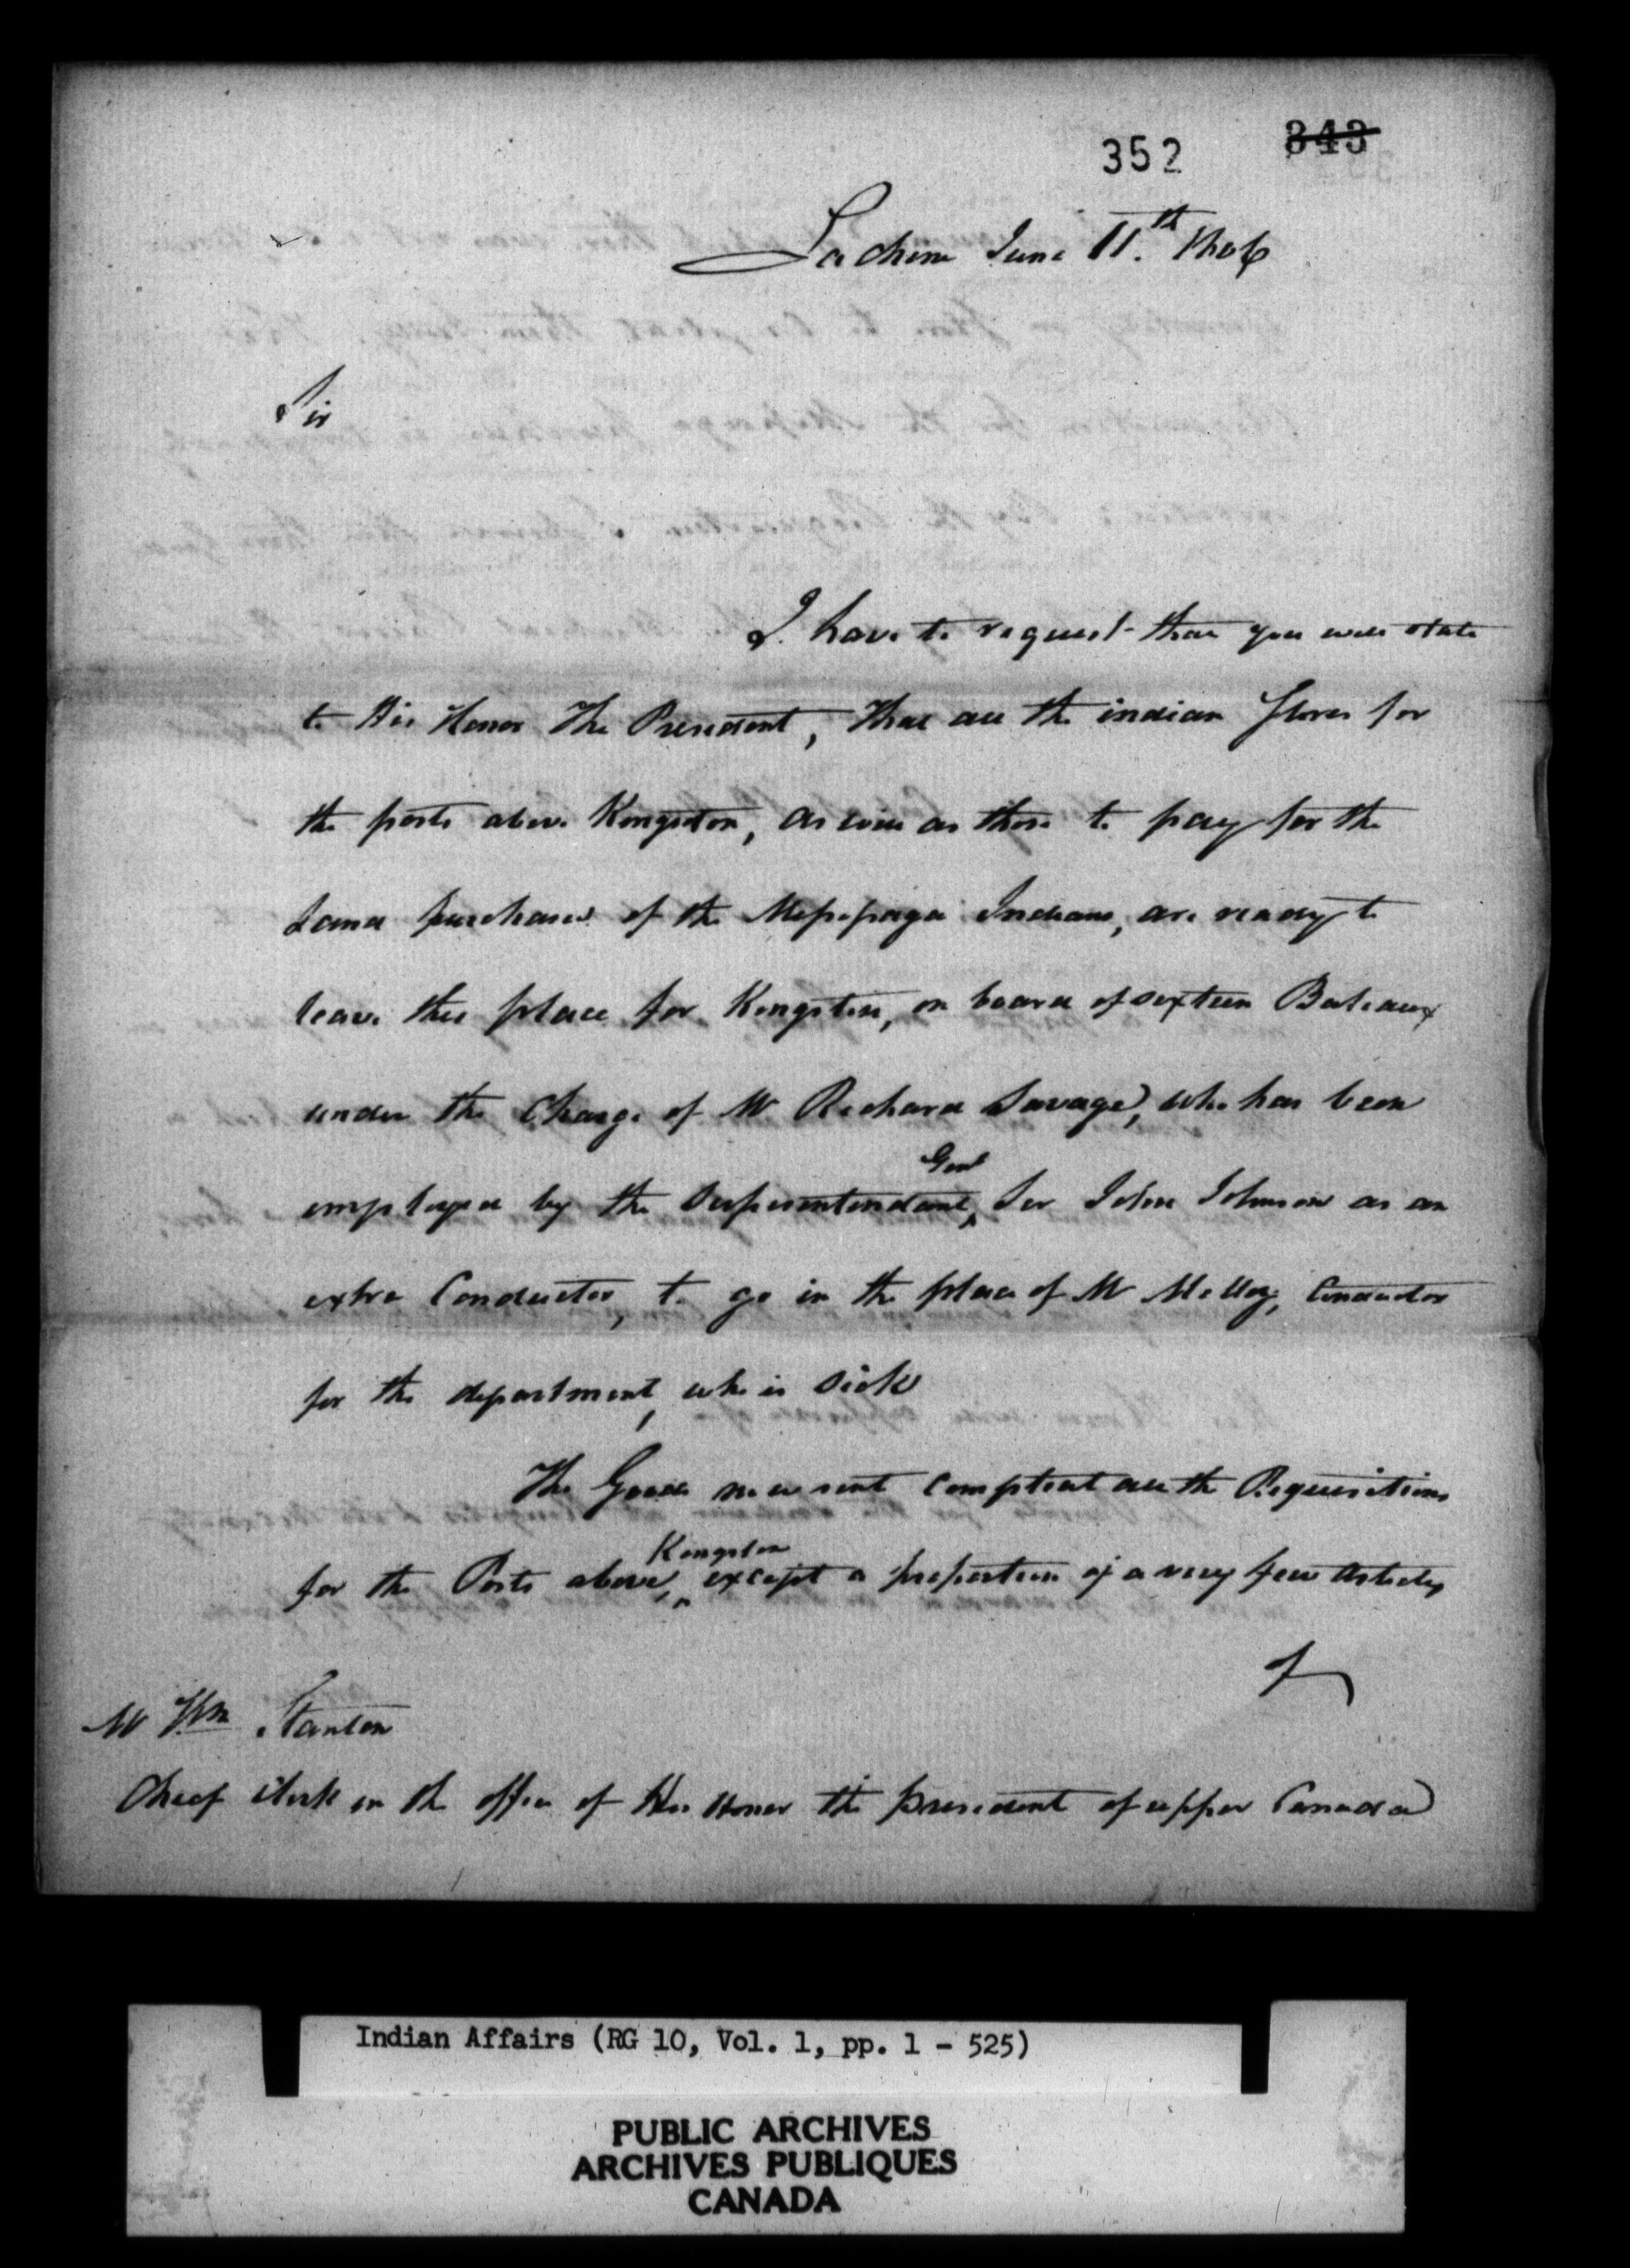 352 343
Lachine June 11th. 1806
Sir
I have to request that you will state
to His Honor The President, that all the indian Stores for
the posts above Kingston, as well as those to pay for the
Land purchased of the Missisaga Indians, are ready to
leave this place for Kingston, on board of sixteen Bateaux
under the Charge of Mr Richard Savage, who has been
Genl
employed by the Superintendant, Sir John Johnson as an
extra Conductor, to go in the place of Mr Melloy, Conductor
for the department, who is sick
The Goods now sent compleat all the Requisitions
Kingston
for the Posts above, except a proportion of a very few Articles
of
Mr Wm Stanton
Cheef Clerk in the office of His Honor the President of upper Canada
Indian Affairs (RG 10, Vol. 1, pp. 1 - 525)
PUBLIC ARCHIVES
ARCHIVES PUBLIQUES
CANADA